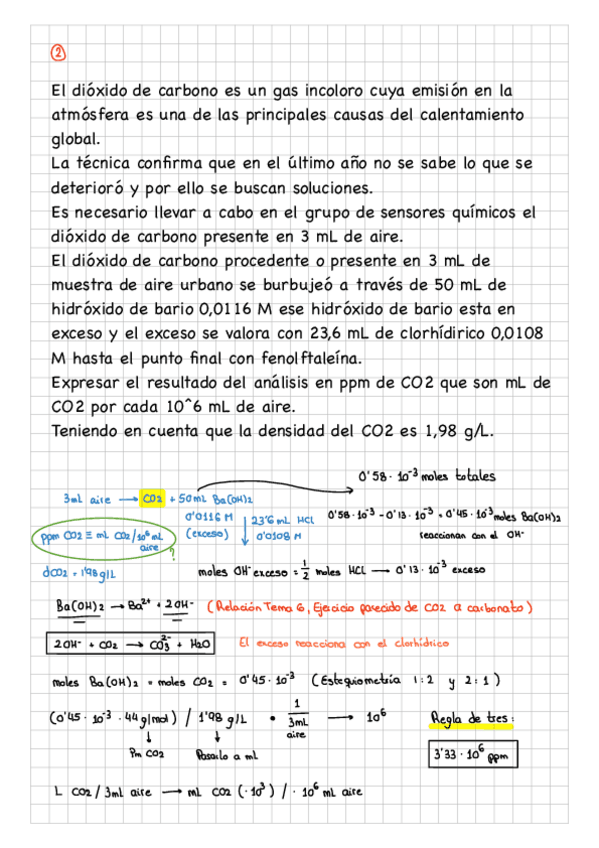 2
El dióxido de carbono es un gas incoloro cuya emisión en la
atmósfera es una de las principales causas del calentamiento
global.
La técnica confirma que en el último año no se sabe lo que se
deterioró y por ello se buscan soluciones.
Es necesario llevar a cabo en el grupo de sensores químicos el
dióxido de carbono presente en 3 mL de aire.
El dióxido de carbono procedente o presente en 3 mL de
muestra de aire urbano se burbujeó a través de 50 mL de
hidróxido de bario 0,0116 M ese hidróxido de bario esta en
exceso y el exceso se valora con 23,6 mL de clorhídirico 0,0108
M hasta el punto final con fenolftaleína.
Expresar el resultado del análisis en ppm de CO2 que son mL de
CO2 por cada 10^6 mL de aire.
Teniendo en cuenta que la densidad del CO2 es 1,98 g/L.
0'58 · 10⁻³ moles totales
3ml aire → CO₂ + 50mL Ba(OH)₂
0'0116 M
(exceso)
23'6 mL HCl
0'0108 M
0'58 · 10⁻³ - 0'13 · 10⁻³ = 0'45 · 10⁻³ moles Ba(OH)₂
reaccionan con el OH⁻
ppm CO₂ ≡ mL CO₂/10⁶ mL
aire
?
dCO₂ = 1'98 g/L
moles OH⁻ exceso = 1/2 moles HCl → 0'13 · 10⁻³ exceso
Ba(OH)₂ → Ba²⁺ + 2OH⁻ (Relación Tema 6, Ejercicio parecido de CO2 a carbonato)
2OH⁻ + CO₂ → CO₃²⁻ + H₂O El exceso reacciona con el clorhídrico
moles Ba(OH)₂ = moles CO₂ = 0'45 · 10⁻³ (Estequiometría 1:2 y 2:1)
(0'45 · 10⁻³ · 44 g/mol) / 1'98 g/L · 1/3mL aire → 10⁶ Regla de tres:
Pm CO₂ Pasarlo a ml
3'33 · 10⁶ ppm
L CO₂/3ml aire → mL CO₂ (·10³) / · 10⁶ mL aire